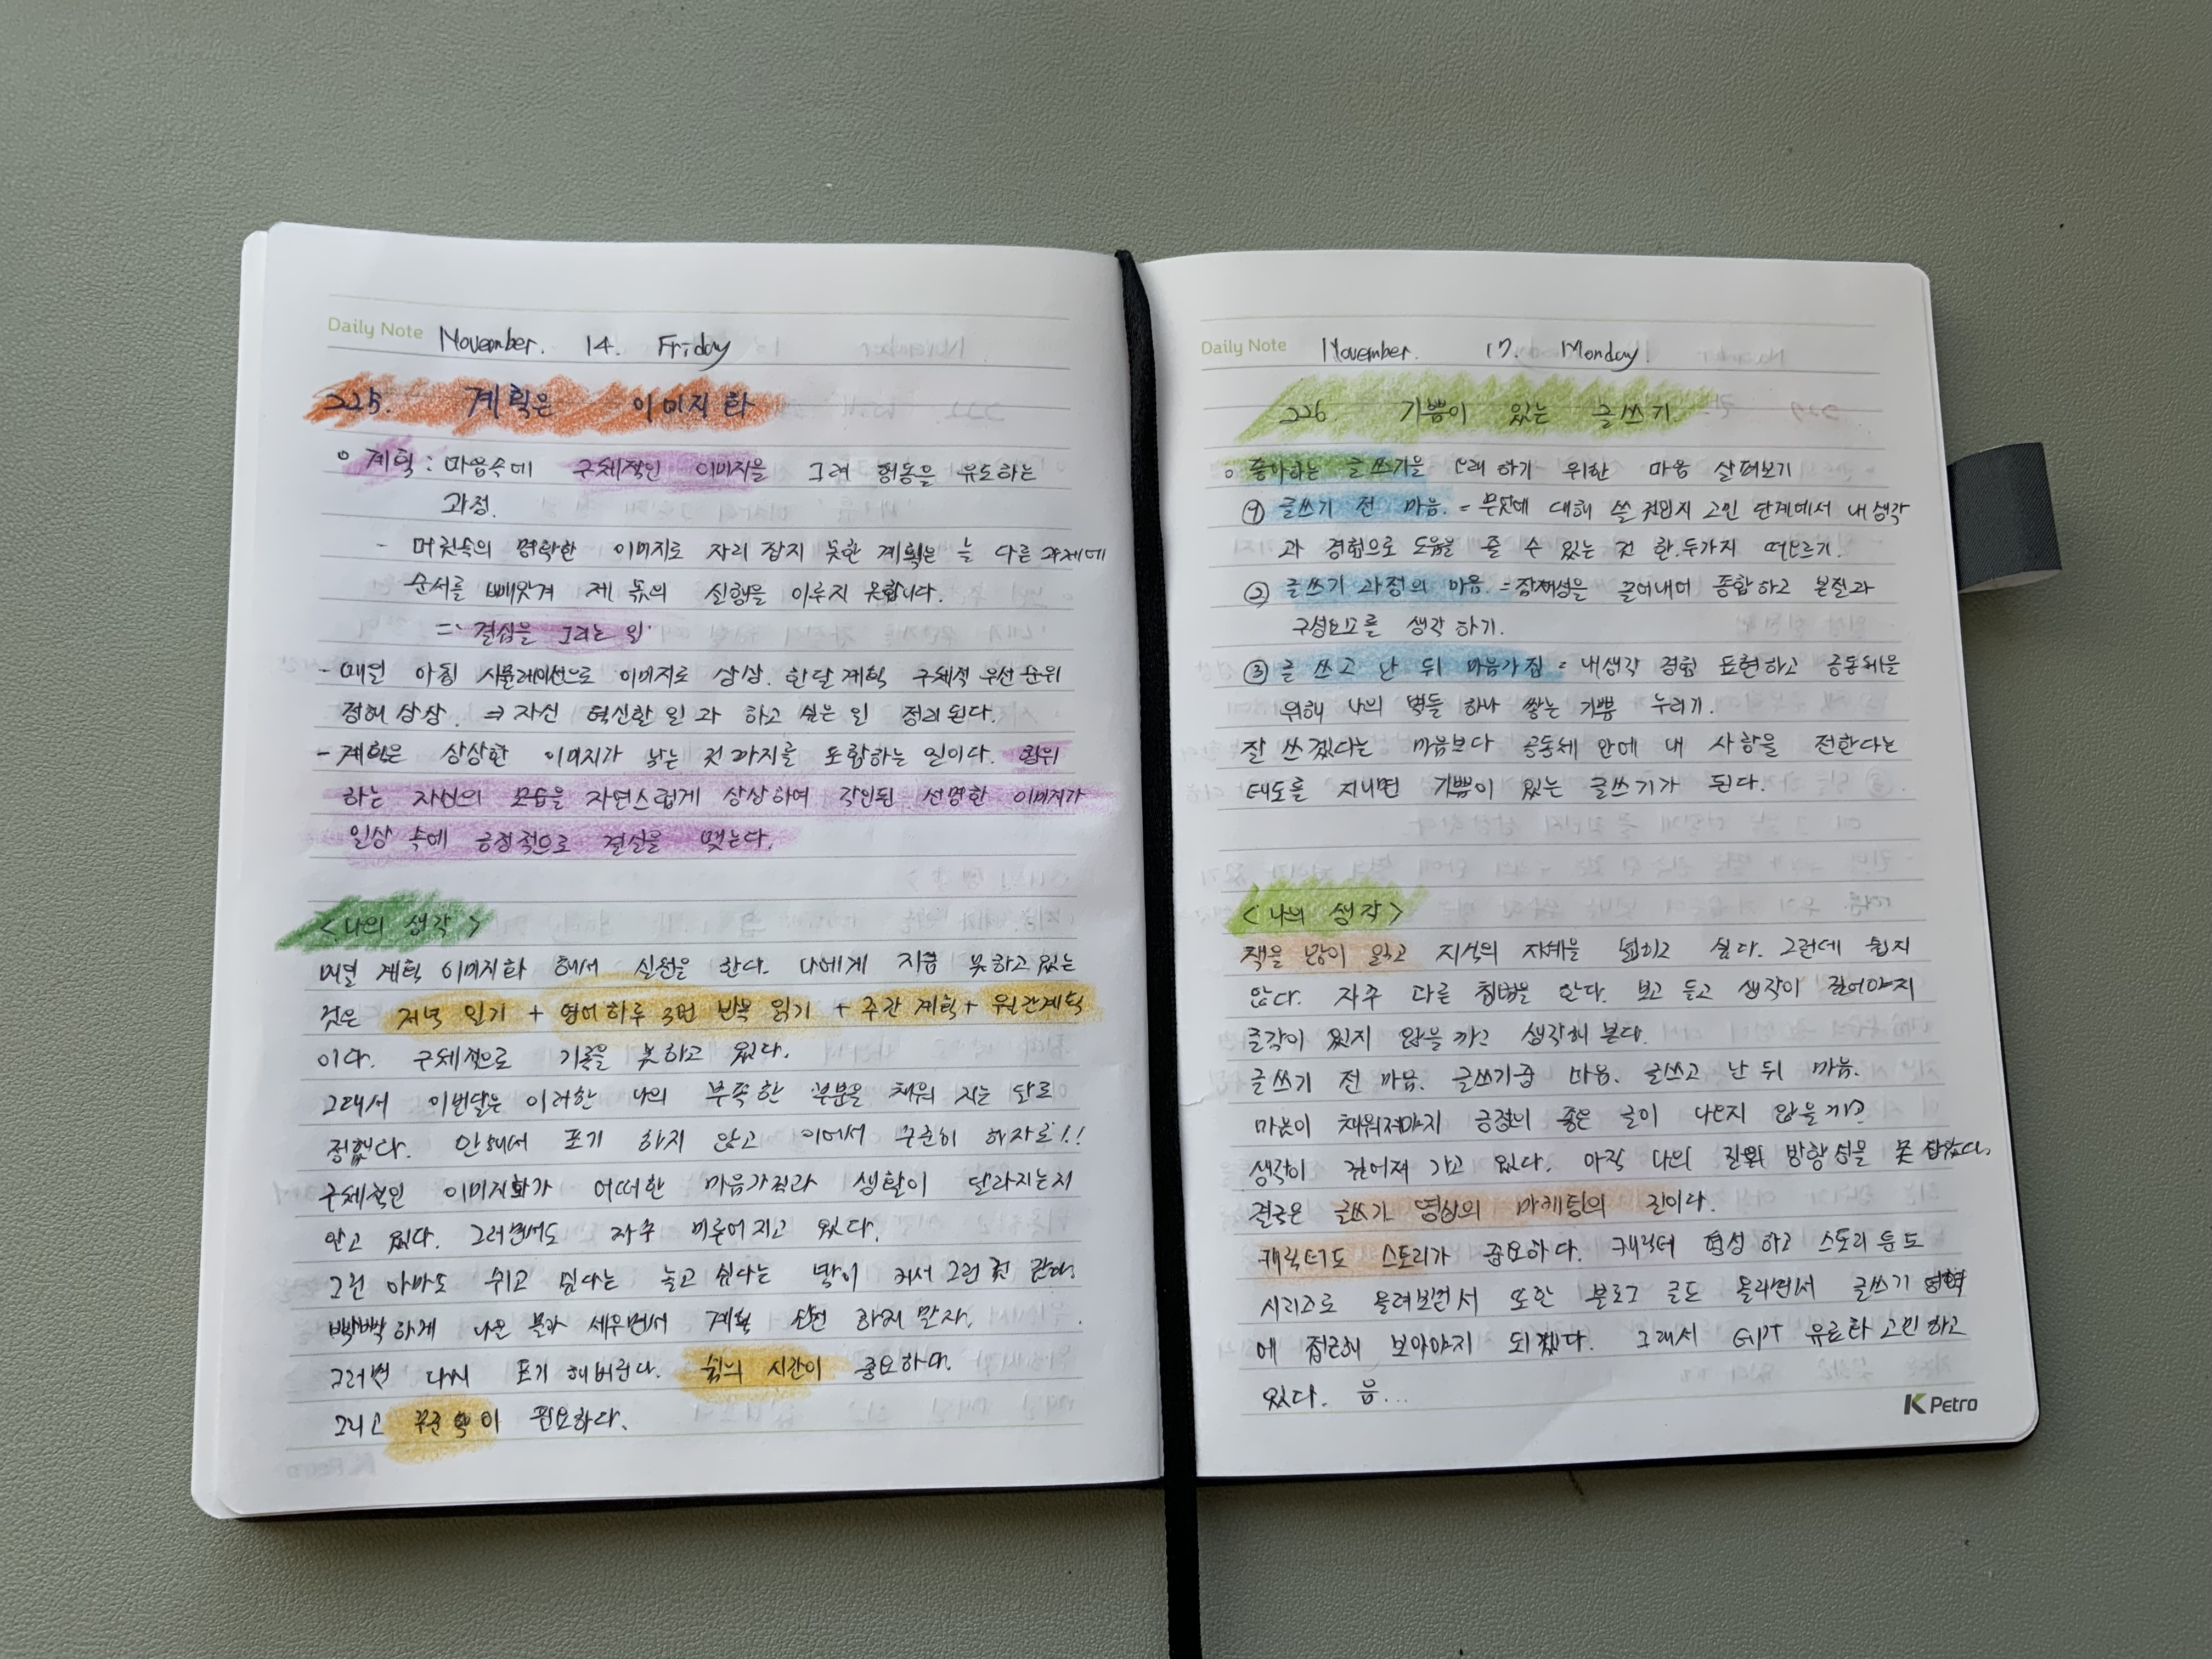 Daily Note November. 14. Friday
225. 계획은 이미지화
o 계획 : 마음속에 구체적인 이미지을 그려 행동을 유도하는
과정.
- 머릿속의 명확한 이미지로 자리 잡지 못한 계획은 늘 다른 과제에
순서를 빼앗겨 제 몫의 실행을 이루지 못합니다.
= 결심을 그리는 일
- 매일 아침 시뮬레이션으로 이미지로 상상. 한달 계획 구체적 우선 순위
정해 상상. ⇒ 자신 혁신할 일과 하고 싶은 일 정리 된다.
- 계획은 상상한 이미지가 낳는 것 까지를 포함하는 일이다.
하는 자신의 모습을 자연스럽게 상상하여 각인된 선명한 이미지가
일상 속에 긍정적으로 결실을 맺는다.
<나의 생각>
매일 계획 이미지화 해서 실천을 한다. 나에게 지금 못하고 있는
것은 저녁 일기 + 영어 하루 3번 반복 읽기 + 주간 계획 + 월간계획
이다. 구체적으로 기록을 못하고 있다.
그래서 이번달은 이러한 나의 부족한 부분을 채워 지는 달로
정했다. 안해서 포기 하지 않고 이어서 꾸준히 하자로!!
구체적인 이미지화가 어떠한 마음가짐과 생활이 달라지는지
알고 있다. 그러면서도 자주 미루어 지고 있다.
그런 아마도 쉬고 싶다는 놀고 싶다는 맘이 커서 그런 것 같다.
빡빡하게 나온 불과 세우면서 계획 실천 하지 말자.
그러면 다시 포기 해버린다. 쉼의 시간이 중요하다.
그리고 꾸준함이 필요하다.
Daily Note November. 17. Monday.
226. 기쁨이 있는 글쓰기
o 좋아하는 글쓰기을 오래 하기 위한 마음 살펴보기
① 글쓰기 전 마음. = 무엇에 대해 쓸 것인지 고민 단계에서 내 생각
과 경험으로 도움을 줄 수 있는 것 한.두가지 떠오르기.
② 글쓰기 과정의 마음. = 잠재성을 끌어내어 종합하고 본질과
구성요소를 생각 하기.
③ 글 쓰고 난 뒤 마음가짐 = 내생각 경험 표현하고 공동체을
위해 나의 벽돌 하나 쌓는 기쁨 누리기.
잘 쓰겠다는 마음보다 공동체 안에 내 사랑을 전한다는
태도를 지니면 기쁨이 있는 글쓰기가 된다.
<나의 생각>
책을 많이 읽고 지식의 지혜을 넓히고 싶다. 그런데 쉽지
않다. 자주 다른 경험을 한다. 보고 듣고 생각이 깊어야지
즐각이 있지 않을까고 생각해 본다.
글쓰기 전 마음. 글쓰기중 마음. 글쓰고 난 뒤 마음.
마음이 채워져야지 긍정의 좋은 글이 나오지 않을까?
생각이 깊어져 가고 있다. 아직 나의 진짜 방향성을 못 잡았다.
결국은 글쓰기 영상의 마케팅의 길이다.
캐릭터도 스토리가 중요하다. 캐릭터 형성 하고 스토리 등도
시리즈로 올려보면서 또한 블로그 글도 올리면서 글쓰기 영역
에 접근해 보아야지 되겠다. 그래서 GPT 유료화 고민 하고
있다. 음...
K Petro